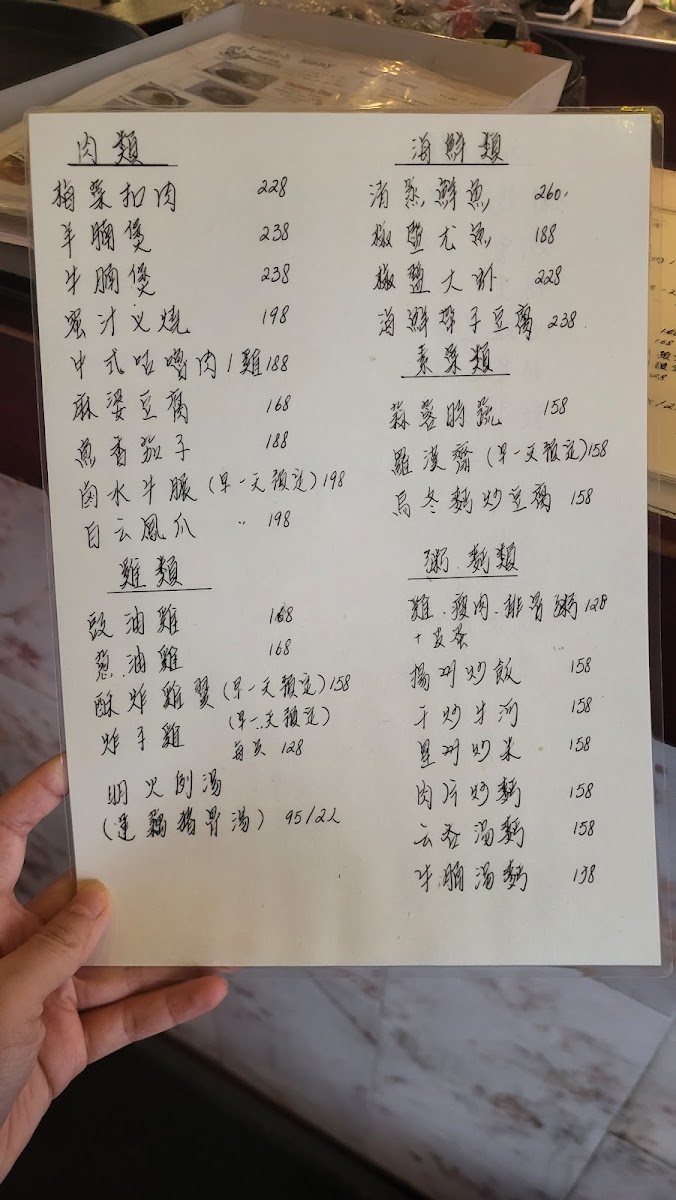 肉類
梅菜扣肉 228
羊腩煲 238
牛腩煲 238
蜜汁义燒 198
中式咕嚕肉/雞 188
麻婆豆腐 168
魚香茄子 188
卤水牛𦟌 (早一天預定) 198
白云鳳爪 〃 198
雞類
豉油雞 168
葱油雞 168
酥炸雞翼 (早一天預定) 158
炸子雞 (早一天預定)
每隻 128
明火例湯
(蓮藕猪骨湯) 95/2人
海鮮類
清蒸鮮魚 260.
椒鹽尤魚 188
椒鹽大虾 228
海鮮帶子豆腐 238
素菜類
蒜蓉時蔬 158
羅漢齋 (早一天預定) 158
烏冬麵炒豆腐 158
粥.麵類
雞.瘦肉.排骨粥 128
+皮蛋
揚州炒飯 158
干炒牛河 158
星州炒米 158
肉片炒麵 158
云吞湯麵 158
牛腩湯麵 138